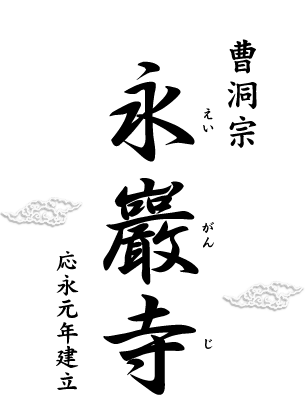 曹洞宗
永巖寺
えいがんじ
応永元年建立